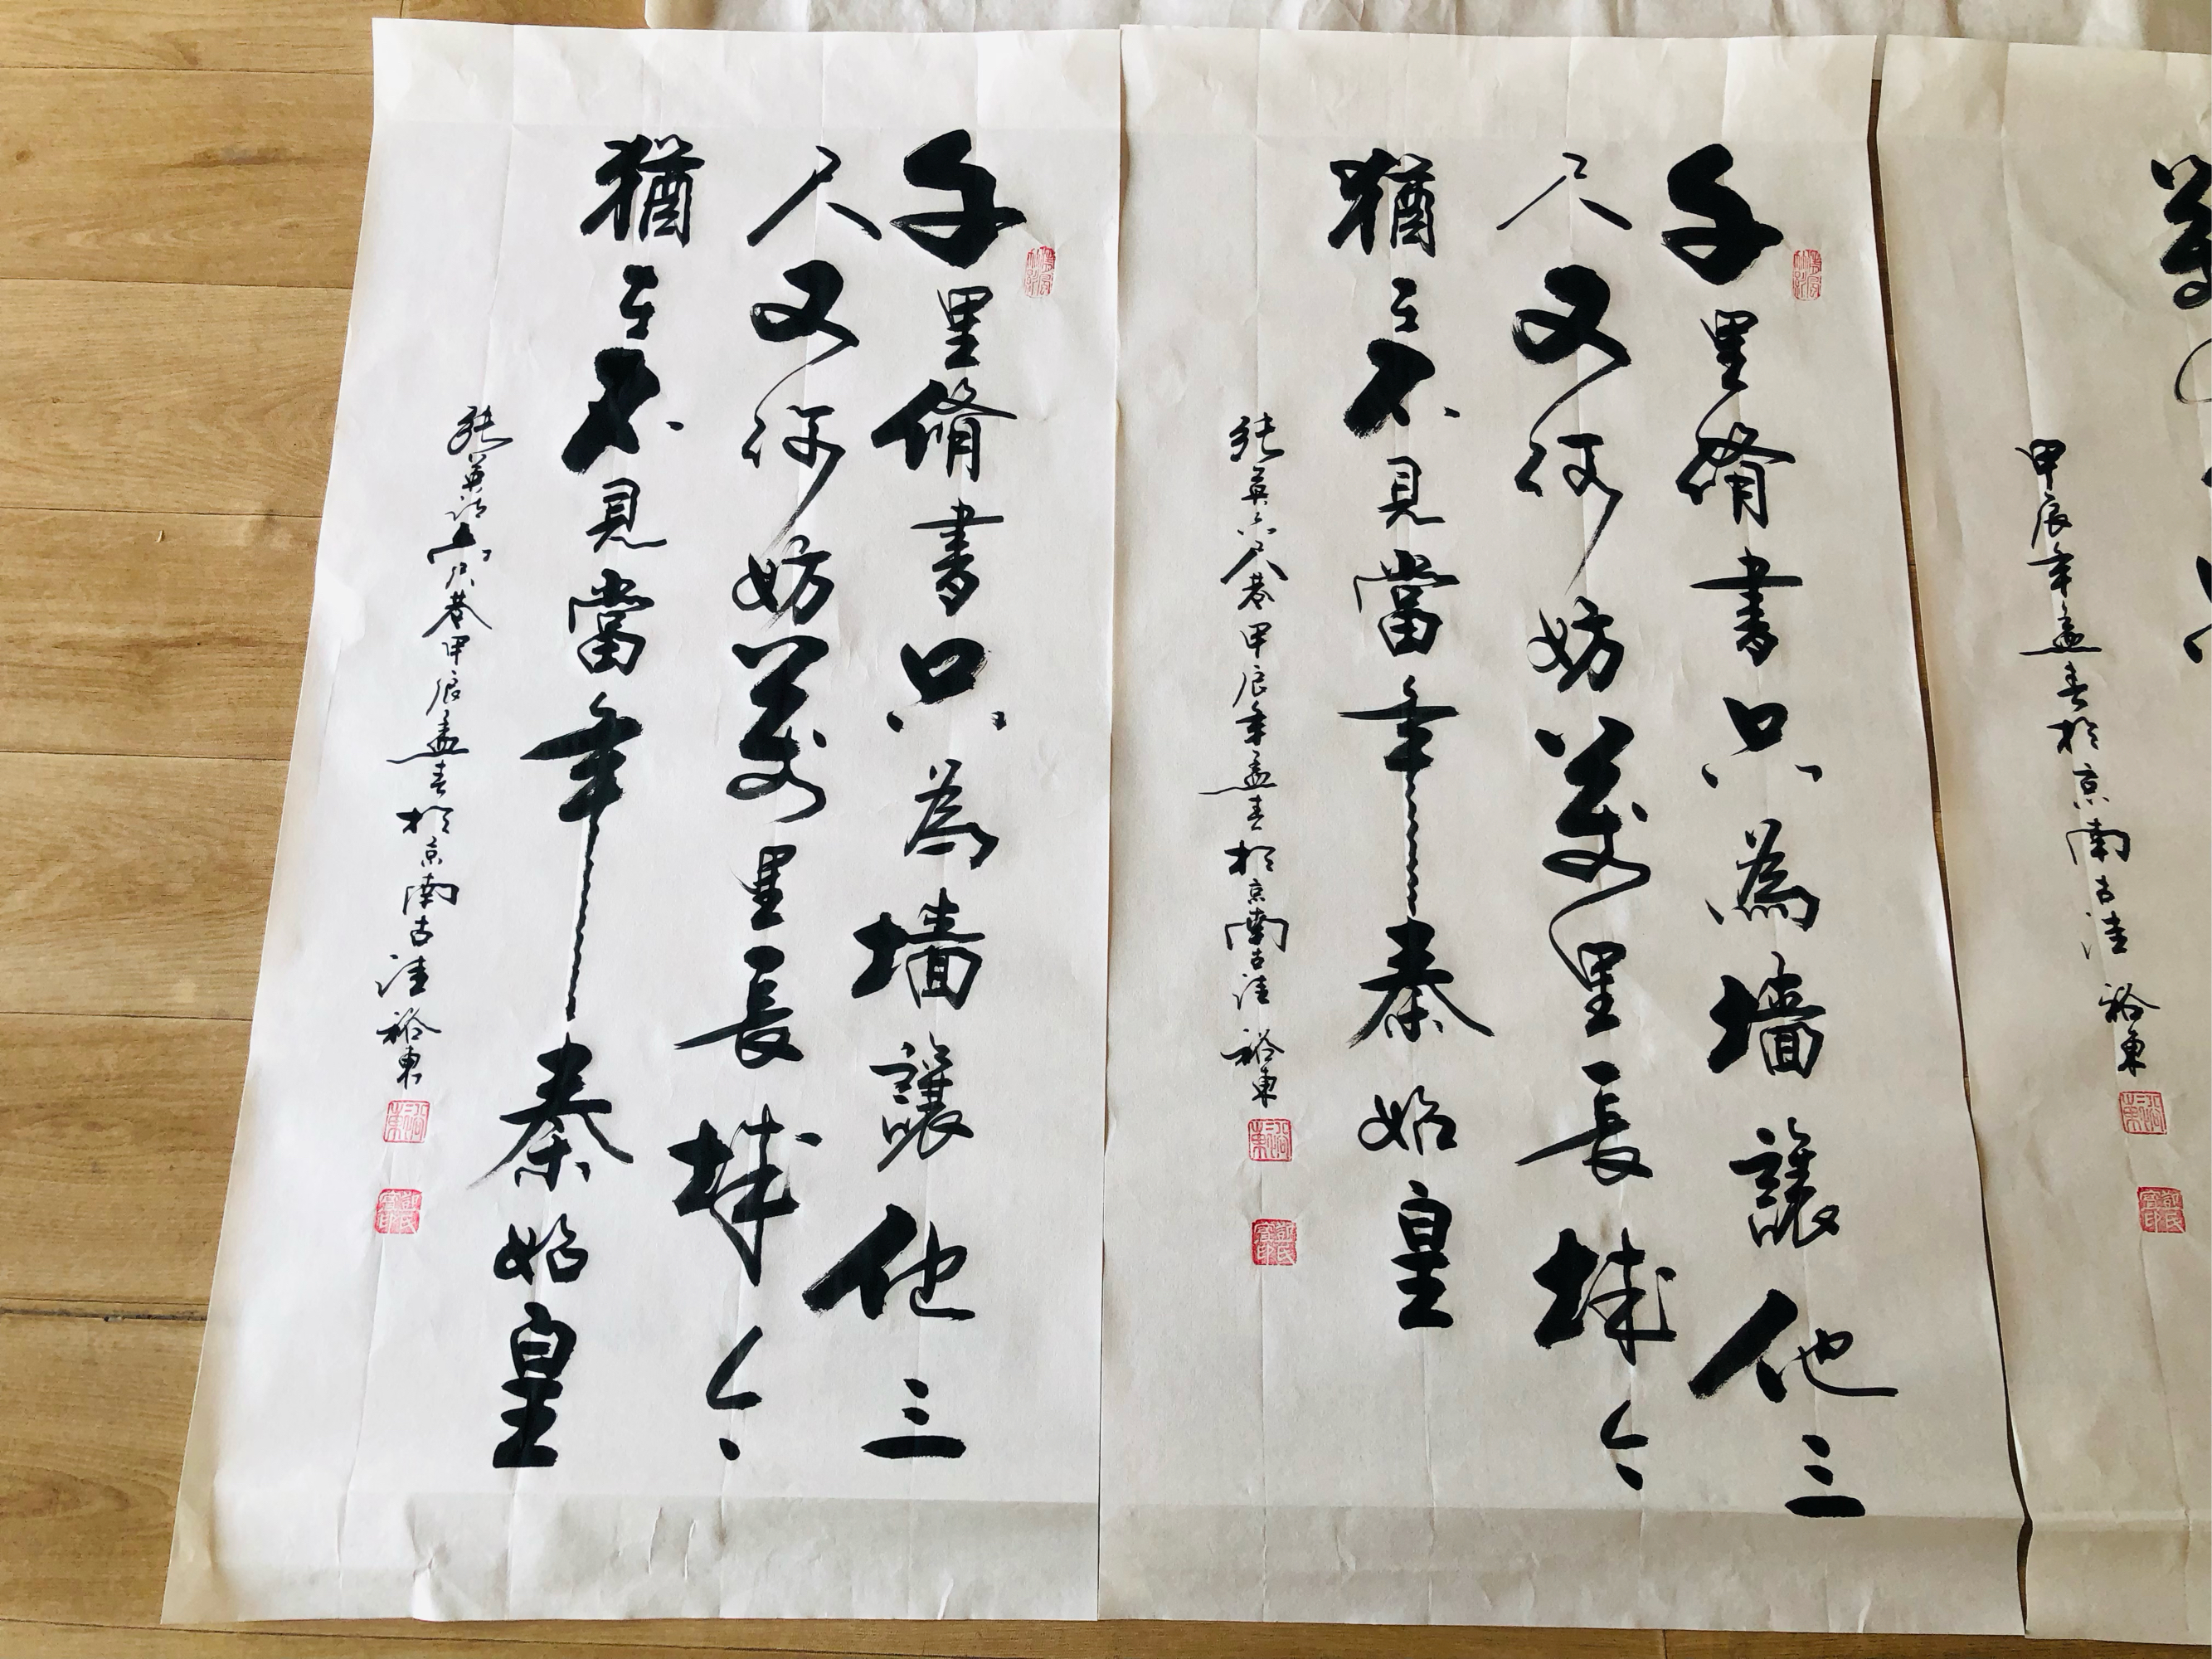 甲辰年孟春於京南古洼 裕東
裕東
千里脩書只為墙讓他三
尺又何妨萬里長城今
猶在不見當年秦始皇
張英六尺巷甲辰年孟春於京南古洼 裕東
裕東
千里脩書只為墙讓他三
尺又何妨萬里長城今
猶在不見當年秦始皇
張英詩六尺巷甲辰孟春於京南古洼 裕東
裕東